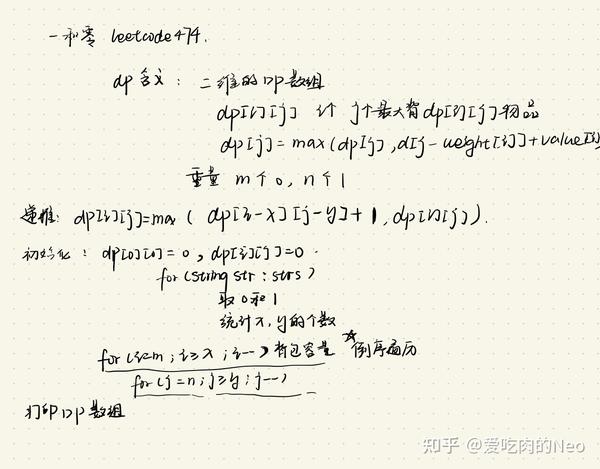 一和零 leetcode474.
dp含义：二维的DP数组
dp[i][j] i个 j个最大背dp[i][j]物品
dp[j] = max(dp[j], d[j-weight[i]]+value[i]
重量 m个0, n个1
递推: dp[i][j]=max( dp[i-x][j-y]+1, dp[i][j]).
初始化: dp[0][0]=0, dp[i][j]=0.
for(string str : strs)
取0和1
统计x,y的个数
for(i=m; i≥x; i--) 背包容量 倒序遍历
for(j=n; j≥y; j--)
打印DP数组
知乎 @爱吃肉的Neo